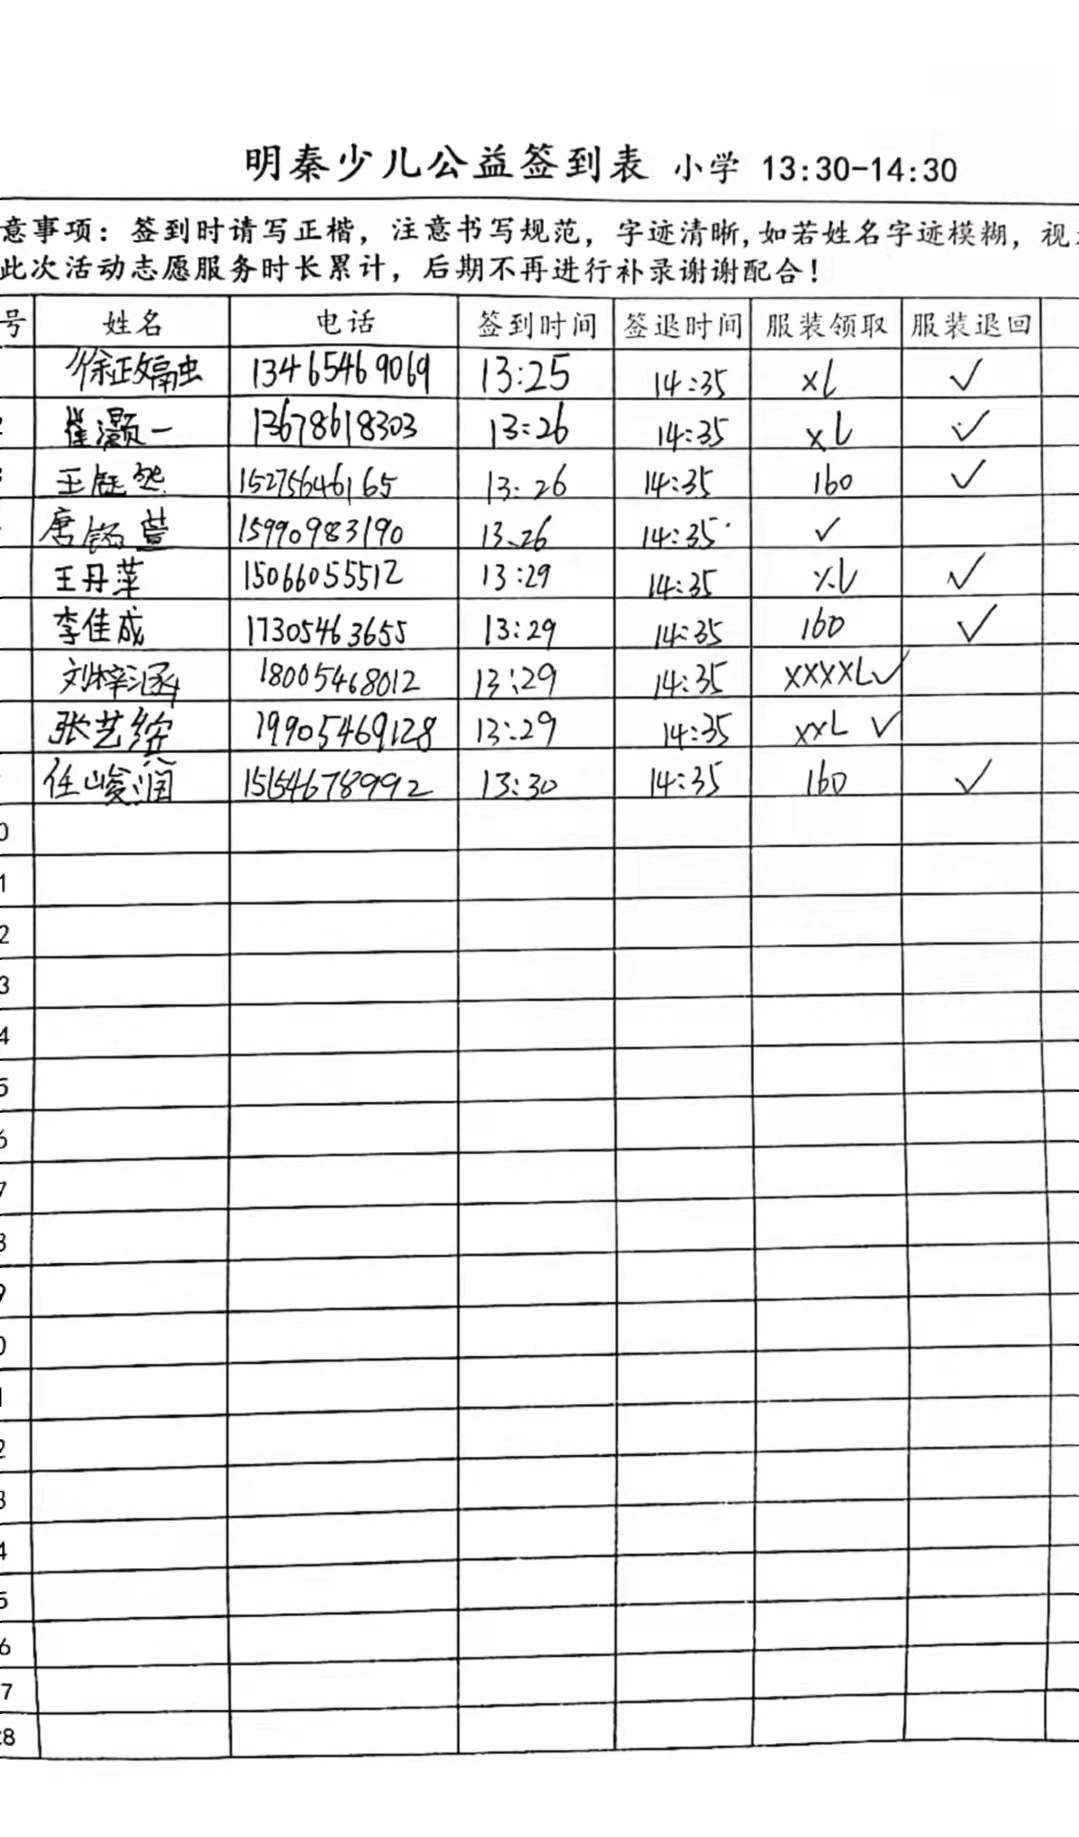 明秦少儿公益签到表 小学 13:30-14:30
意事项：签到时请写正楷，注意书写规范，字迹清晰,如若姓名字迹模糊，视
此次活动志愿服务时长累计，后期不再进行补录谢谢配合！
号 姓名 电话 签到时间 签退时间 服装领取 服装退回
徐政融 13465469069 13:25 14:35 XL ✓
2 崔灏一 13678618303 13:26 14:35 XL ✓
3 王庭然 15275646165 13:26 14:35 160 ✓
唐 萱 15990983190 13:26 14:35 ✓
王丹萍 15066055512 13:29 14:35 XL ✓
李佳成 17305463655 13:29 14:35 160 ✓
刘梓涵 18005468012 13:29 14:35 XXXXL✓
张艺缤 19905469128 13:29 14:35 XXL ✓
任峻润 15154678992 13:30 14:35 160 ✓
0
1
2
3
4
5
6
7
8
9
0
1
2
3
4
5
6
7
28